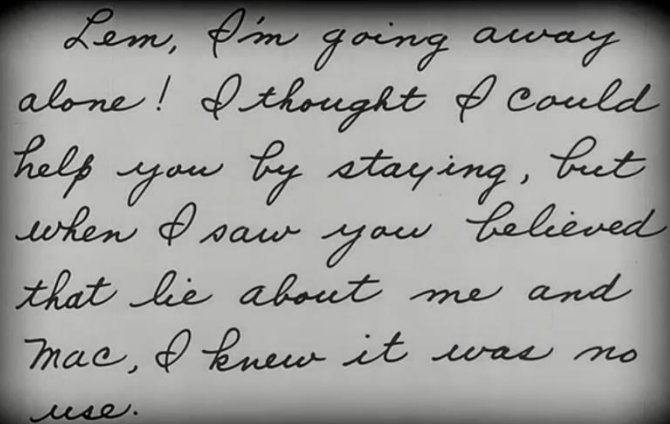 Lem, I'm going away
alone! I thought I could
help you by staying, but
when I saw you believed
that lie about me and
Mac, I knew it was no
use.